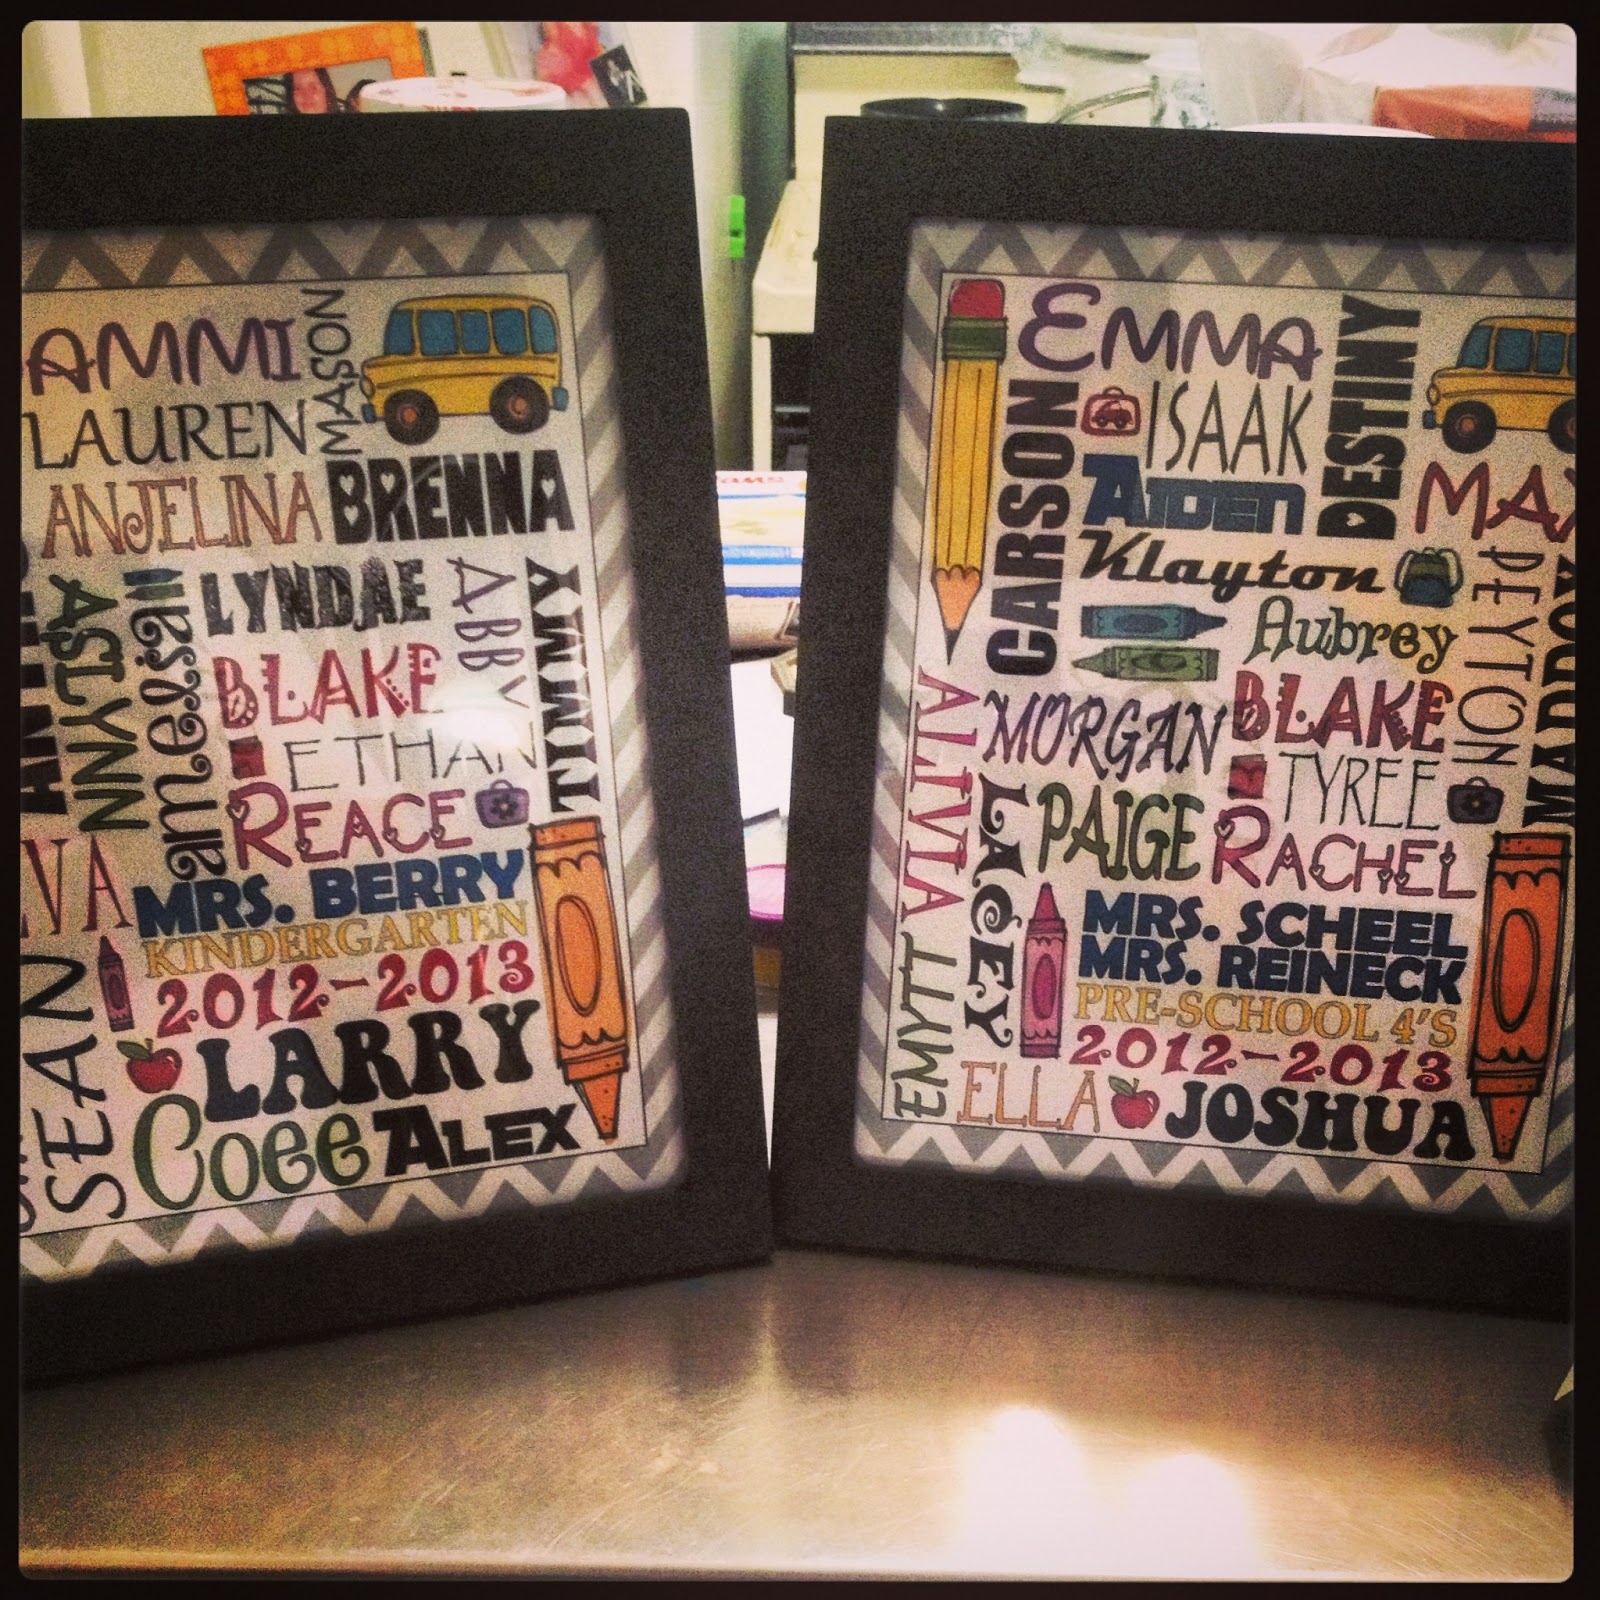 AMMI
MASON
LAUREN
ANJELINA
BRENNA
ASLYNN
amelia
LYNDAE
ABBY
TIMMY
BLAKE
ETHAN
REACE
VA
MRS. BERRY
KINDERGARTEN
2012-2013
SEAN
LARRY
Coee
ALEX
EMMA
DESTINY
CARSON
ISAAK
AIDEN
MA
Klayton
Aubrey
PEYTON
MADDOX
ALIVIA
MORGAN
BLAKE
TYREE
LACEY
PAIGE
RACHEL
EMYTT
MRS. SCHEEL
MRS. REINECK
PRE-SCHOOL 4'S
2012-2013
ELLA
JOSHUA